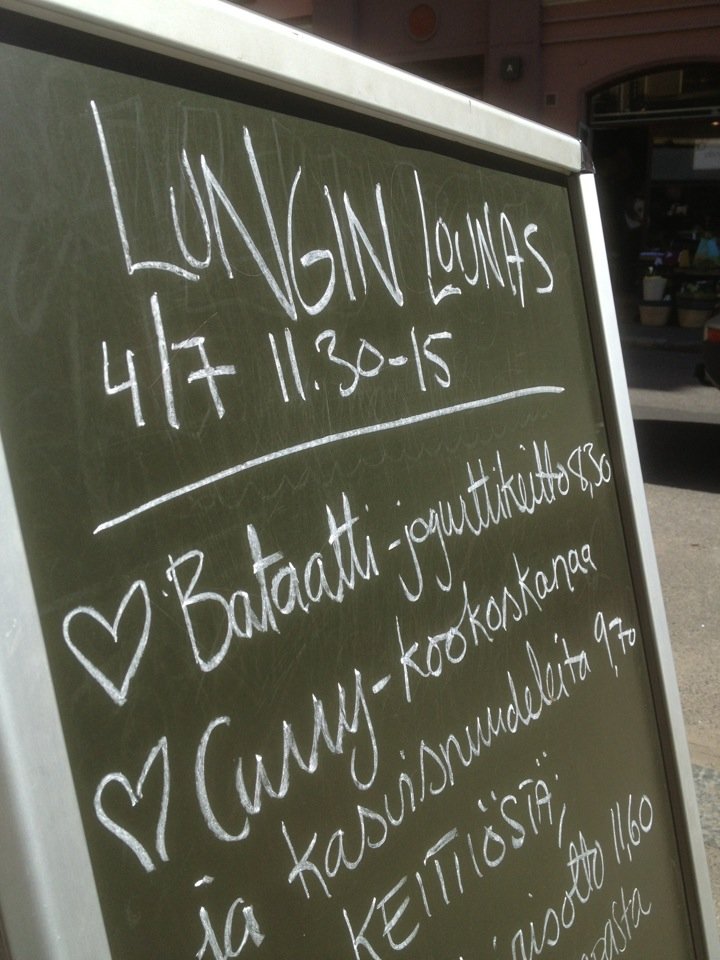 LUNGIN LOUNAS
4/7 11.30-15
Bataatti-jogurttikeitto 8,30
Curry-kookoskanaa
ja kasvisnuudeleita 9,70
KEITTIÖSTÄ;
risotto 11,60
pasta